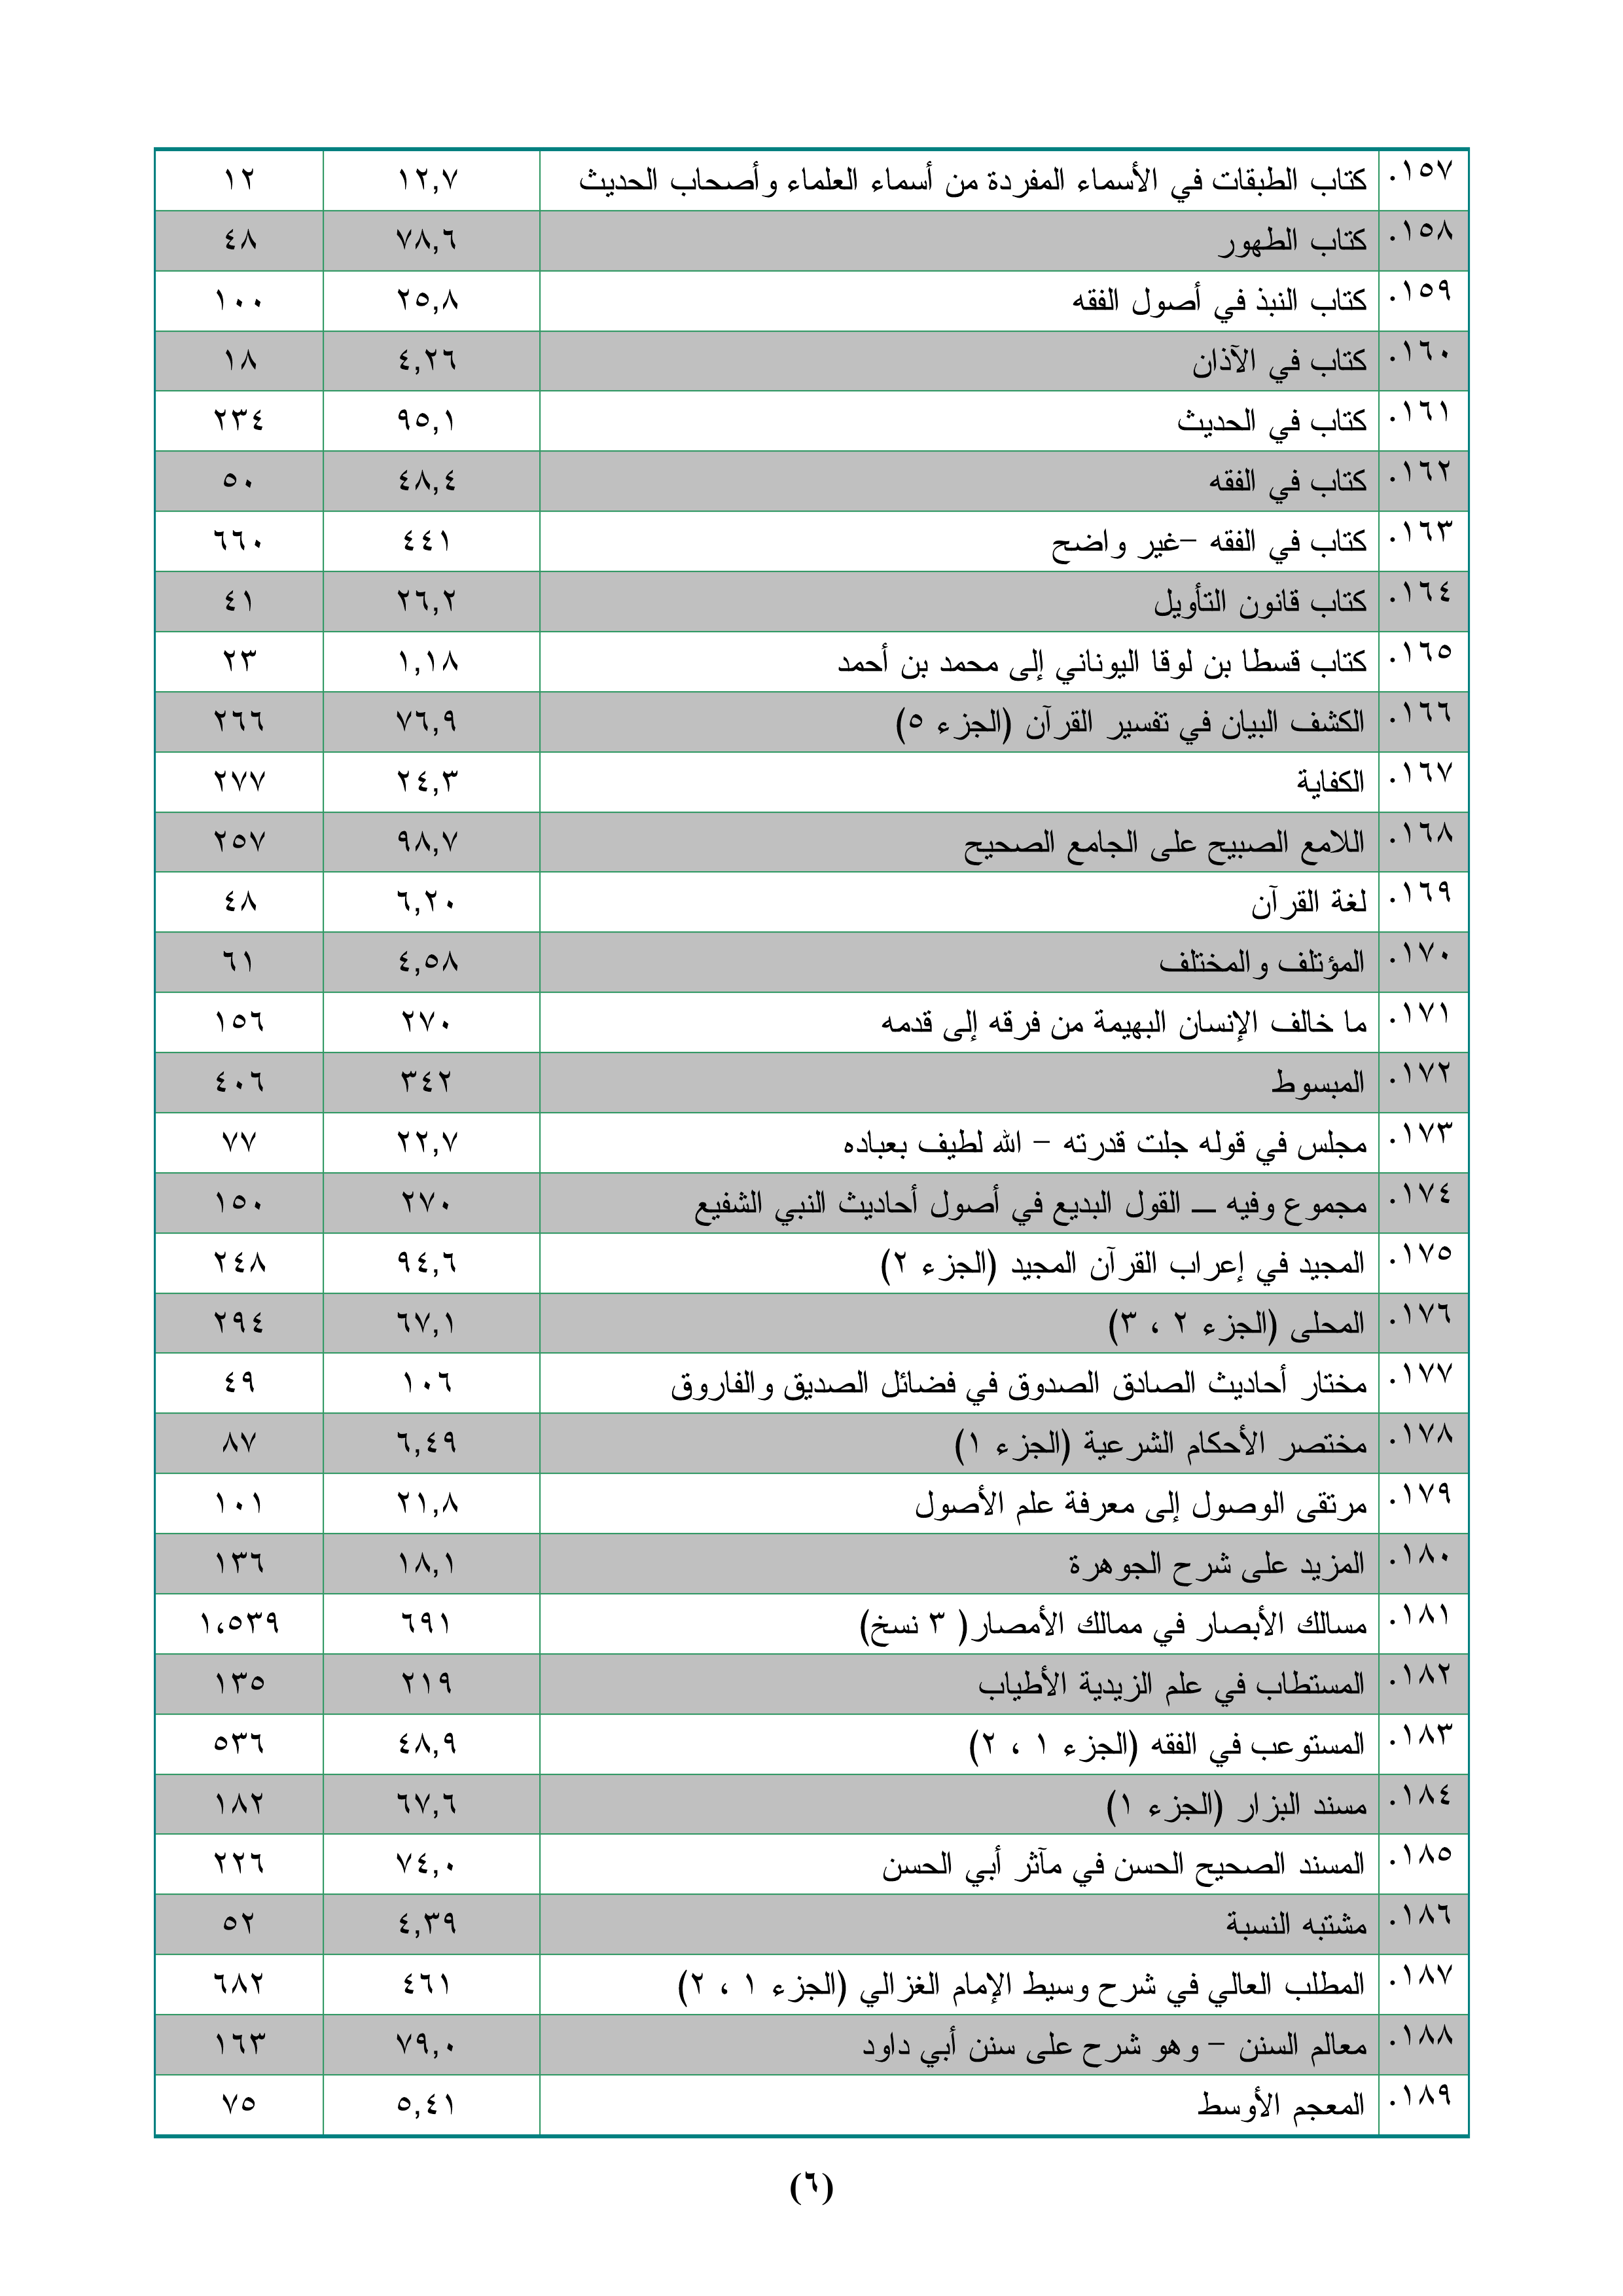 ١٥٧. كتاب الطبقات في الأسماء المفردة من أسماء العلماء وأصحاب الحديث ١٢,٧ ١٢
١٥٨. كتاب الطهور ٧٨,٦ ٤٨
١٥٩. كتاب النبذ في أصول الفقه ٢٥,٨ ١٠٠
١٦٠. كتاب في الآذان ٤,٢٦ ١٨
١٦١. كتاب في الحديث ٩٥,١ ٢٣٤
١٦٢. كتاب في الفقه ٤٨,٤ ٥٠
١٦٣. كتاب في الفقه –غير واضح ٤٤١ ٦٦٠
١٦٤. كتاب قانون التأويل ٢٦,٢ ٤١
١٦٥. كتاب قسطا بن لوقا اليوناني إلى محمد بن أحمد ١,١٨ ٢٣
١٦٦. الكشف البيان في تفسير القرآن (الجزء ٥) ٧٦,٩ ٢٦٦
١٦٧. الكفاية ٢٤,٣ ٢٧٧
١٦٨. اللامع الصبيح على الجامع الصحيح ٩٨,٧ ٢٥٧
١٦٩. لغة القرآن ٦,٢٠ ٤٨
١٧٠. المؤتلف والمختلف ٤,٥٨ ٦١
١٧١. ما خالف الإنسان البهيمة من فرقه إلى قدمه ٢٧٠ ١٥٦
١٧٢. المبسوط ٣٤٢ ٤٠٦
١٧٣. مجلس في قوله جلت قدرته – الله لطيف بعباده ٢٢,٧ ٧٧
١٧٤. مجموع وفيه ـــ القول البديع في أصول أحاديث النبي الشفيع ٢٧٠ ١٥٠
١٧٥. المجيد في إعراب القرآن المجيد (الجزء ٢) ٩٤,٦ ٢٤٨
١٧٦. المحلى (الجزء ٢ ، ٣) ٦٧,١ ٢٩٤
١٧٧. مختار أحاديث الصادق الصدوق في فضائل الصديق والفاروق ١٠٦ ٤٩
١٧٨. مختصر الأحكام الشرعية (الجزء ١) ٦,٤٩ ٨٧
١٧٩. مرتقى الوصول إلى معرفة علم الأصول ٢١,٨ ١٠١
١٨٠. المزيد على شرح الجوهرة ١٨,١ ١٣٦
١٨١. مسالك الأبصار في ممالك الأمصار( ٣ نسخ) ٦٩١ ١،٥٣٩
١٨٢. المستطاب في علم الزيدية الأطياب ٢١٩ ١٣٥
١٨٣. المستوعب في الفقه (الجزء ١ ، ٢) ٤٨,٩ ٥٣٦
١٨٤. مسند البزار (الجزء ١) ٦٧,٦ ١٨٢
١٨٥. المسند الصحيح الحسن في مآثر أبي الحسن ٧٤,٠ ٢٢٦
١٨٦. مشتبه النسبة ٤,٣٩ ٥٢
١٨٧. المطلب العالي في شرح وسيط الإمام الغزالي (الجزء ١ ، ٢) ٤٦١ ٦٨٢
١٨٨. معالم السنن – وهو شرح على سنن أبي داود ٧٩,٠ ١٦٣
١٨٩. المعجم الأوسط ٥,٤١ ٧٥
(٦)